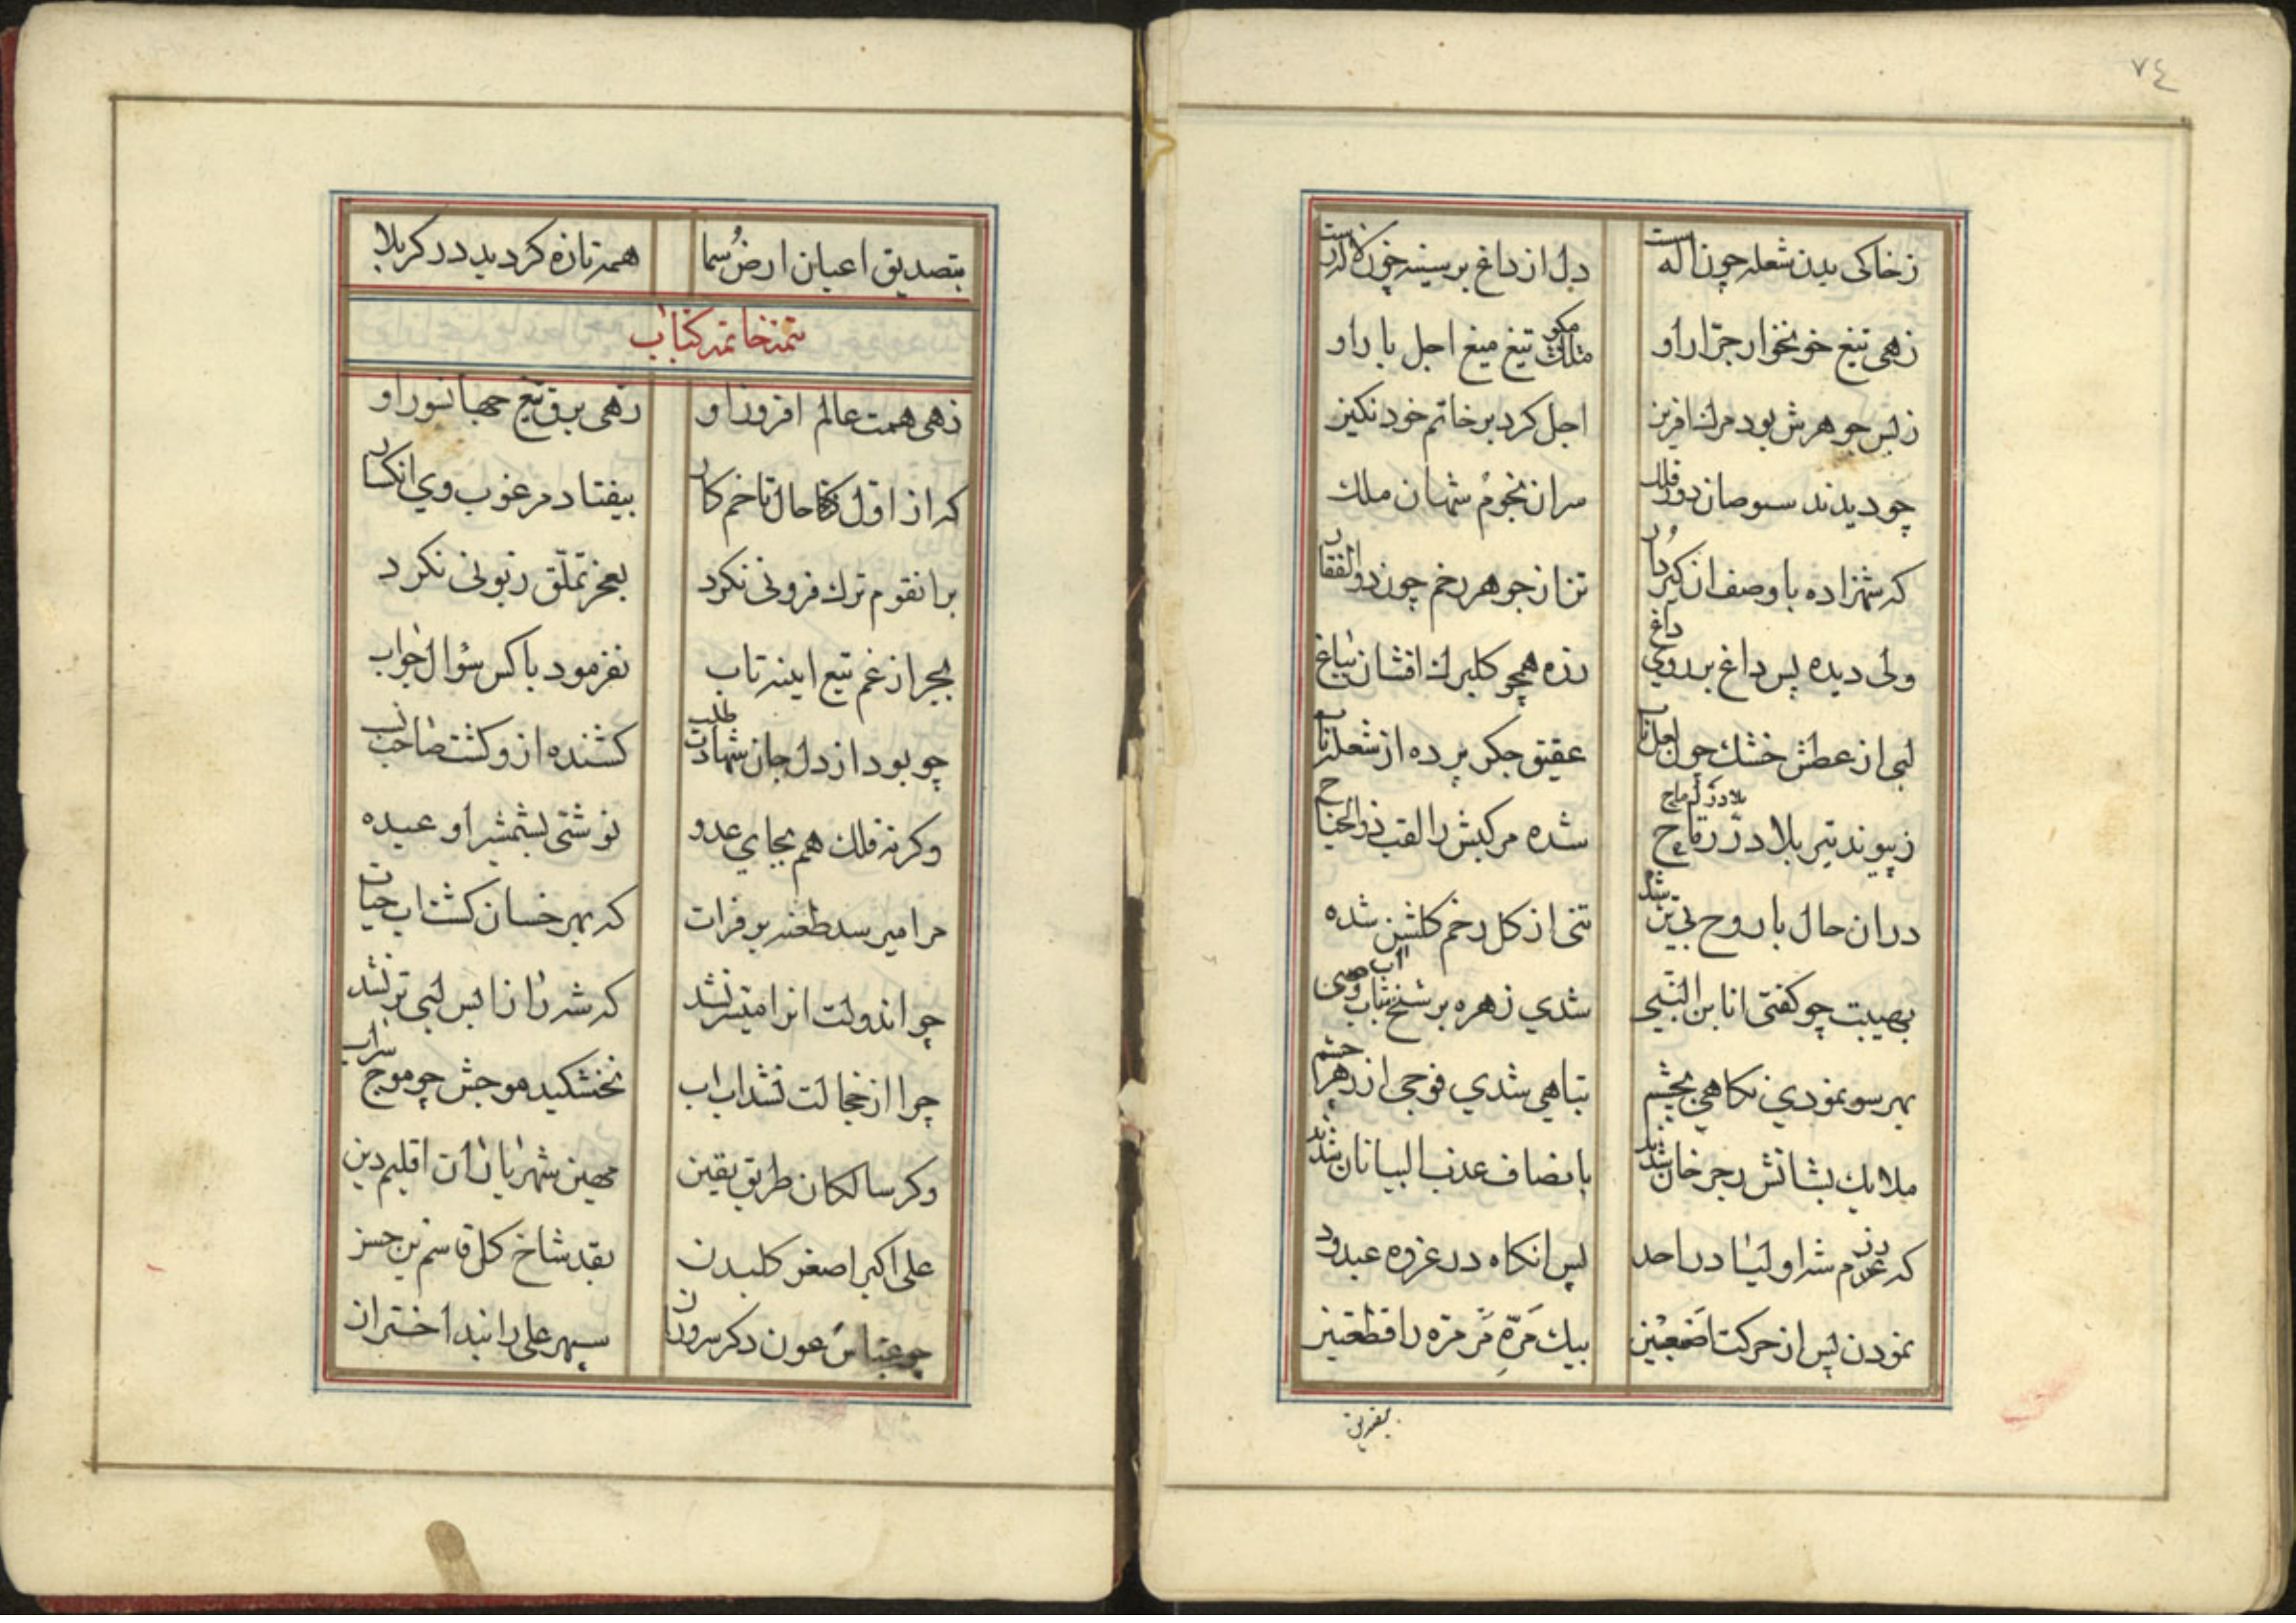 ٧٤
ز خاکی بدن شعله چون لاله است دل از داغ بر سینه چون لاله است
زهی تیغ خونخوار جرّار او مکو تیغ میغ اجل بار او
ز بس جوهرش بود مرك افرین اجل کرد بر خاتم خود نکین
چو دیدند سبوصان فلك سران نجوم شهان ملك
که شهزاده با وصف ان کیر دار تن از جوهر زخم چون ذوالفقار
ولی دیده پس داغ بر روی داغ زده همچو کلبرك افشان بباغ
لبی از عطش خشك چون لعل ناب عقیق جکر پرده از شعله تاب
ز پیوند تیر بلا در رماح شده مرکبش را لقب ذوالجناح
در ان حال با روح بی تن شد تنی از کل زخم کلشن شده
بهیبت چو کفتی انا بن النبی شدی زهره بر شیخ
بهر سو نمودی نکاهی بچشم تباهی شدی فوجی از زهر چشم
ملایك بشانش رجز خان شدند بانصاف عذب البیانان شدند
که رزم شه اولیا در احد پس انکاه در غزوه عبدود
نمودن پس از حرکت اضبعین بیك مَرّهِ مَر مرّه را قطعتین
بتصدیق اعیان ارض سما همه تازه کردید در کربلا
تتمه خاتمه کتاب
زهی همت عالم افروز او زهی برق تیغ جهانسوز او
که از اوّل حال تا ختم کار بیفتاد مرغوب وی انکسار
بر انقوم ترك فزونی نکرد بعجز تملّق زبونی نکرد
بجز از غم تیغ اینه تاب نفرمود با کس سؤال جواب
چو بود از دل جان شهادت طلب کشنده از و کشت صاحب
وکرنه فلك هم بجای عدو نوشتی بشمشیر او عبده
مرا میرسد طعنه بر فرات که بهر خسان کشت اب حیات
چو اندولت انرا میسّر نشد که شه را از ان پس لبی تر نشد
چرا از خجالت نشد اب اب نخشکید موجش چو موج سراب
وکر سالکان طریق یقین مهین شهریاران اقلیم دین
علی اکبر اصغر کلبدن بقد شاخ کل قاسم بن حسن
چو عبّاس عون دکر سروران سپهر علی را نبد اختران